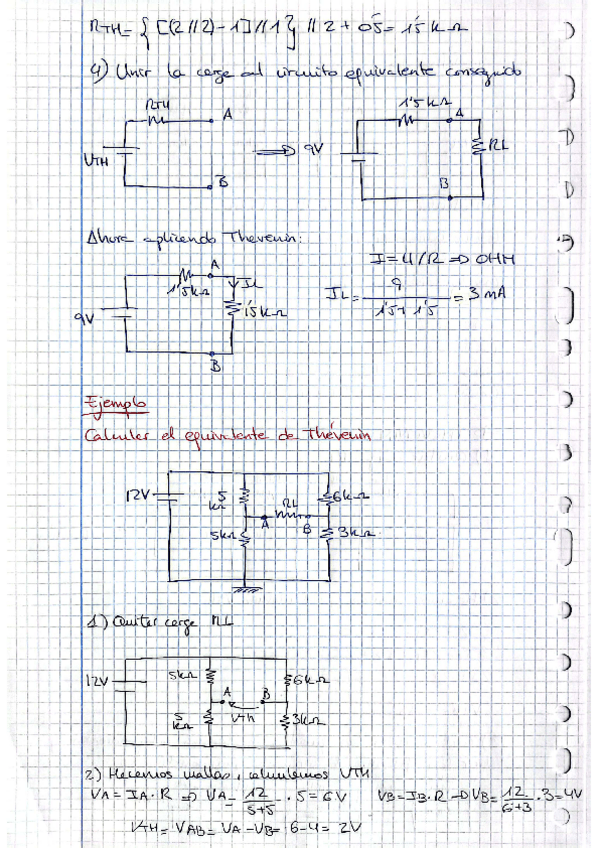 RTH= { [(2//2)-1]//1 } // 2 + 0'5 = 1'5 kΩ
4) Unir la carga al circuito equivalente conseguido
RTH
A
VTH
B
⇒
9V
1'5 kΩ
A
RL
B
Ahora aplicando Thevenin:
I = U/R ⇒ OHM
A
1'5kΩ
IL
9V
1'5kΩ
B
IL = 9 / 1'5 + 1'5 = 3 mA
Ejemplo
Calcular el equivalente de Thévenin
12V
5 kΩ
RL
6kΩ
A
B
5kΩ
3kΩ
1) Quitar carga RL
12V
5kΩ
6kΩ
A
B
Vth
5 kΩ
3kΩ
2) Hacemos mallas, calculamos VTH
VA = IA·R ⇒ VA = 12 / 5+5 · 5 = 6V VB = IB·R → VB = 12 / 6+3 · 3 = 4V
VTH = VAB = VA - VB = 6 - 4 = 2V